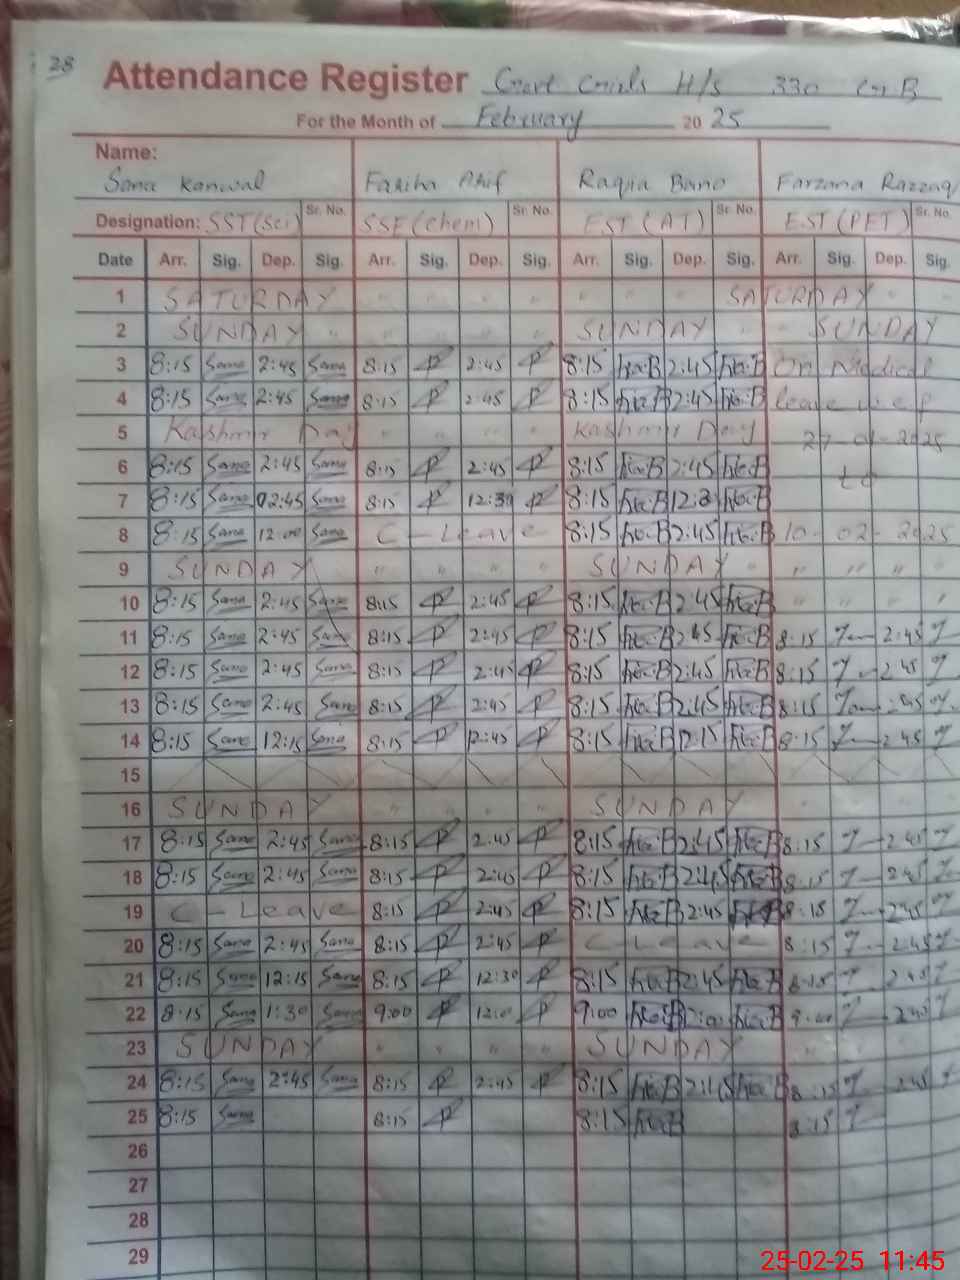 28
Attendance Register Govt Girls H/S 330 GB
For the Month of February 20 25
Name:
Sana Kanwal Fariha Atif Raqia Bano Farzana Razzaq
Designation: SST(Sci) Sr. No. SSE(Chem) Sr. No. EST(AT) Sr. No. EST(PET) Sr. No.
Date Arr. Sig. Dep. Sig. Arr. Sig. Dep. Sig. Arr. Sig. Dep. Sig. Arr. Sig. Dep. Sig.
1 SATURDAY " " " " " " " SATURDAY "
2 SUNDAY " " " " " SUNDAY " SUNDAY
3 8:15 Sana 2:45 Sana 8:15 2:45 8:15 2:45 On Medical
4 8:15 Sana 2:45 Sana 8:15 2:45 8:15 2:45 leave w.e.f
5 Kashmir Day " " " " Kashmir Day 27-01-2025
6 8:15 Sana 2:45 Sana 8:15 2:45 8:15 2:45 to
7 8:15 Sana 02:45 Sana 8:15 12:30 8:15 12:3
8 8:15 Sana 12:00 Sana C-Leave 8:15 2:45 10-02-2025
9 SUNDAY " " " " SUNDAY " " " " "
10 8:15 Sana 2:45 Sana 8:15 2:45 8:15 2:45 " " " "
11 8:15 Sana 2:45 Sana 8:15 2:45 8:15 2:45 8:15 2:45
12 8:15 Sana 2:45 Sana 8:15 2:45 8:15 2:45 8:15 2:45
13 8:15 Sana 2:45 Sana 8:15 2:45 8:15 2:45 8:15 2:45
14 8:15 Sana 12:15 Sana 8:15 12:45 8:15 12:15 8:15 2:45
15
16 SUNDAY " " " " SUNDAY
17 8:15 Sana 2:45 Sana 8:15 2:45 8:15 2:45 8:15 2:45
18 8:15 Sana 2:45 Sana 8:15 2:45 8:15 2:45 8:15 2:45
19 C-Leave 8:15 2:45 8:15 2:45 8:15 2:45
20 8:15 Sana 2:45 Sana 8:15 2:45 C Leave 8:15 2:45
21 8:15 Sana 12:15 Sana 8:15 12:30 8:15 2:45 8:15 2:45
22 8:15 Sana 1:30 Sana 9:00 9:00 9:00 2:45
23 SUNDAY " " " " SUNDAY
24 8:15 Sana 2:45 Sana 8:15 2:45 8:15 2:45 8:15 2:45
25 8:15 Sana 8:15 8:15 8:15
26
27
28
29
25-02-25 11:45